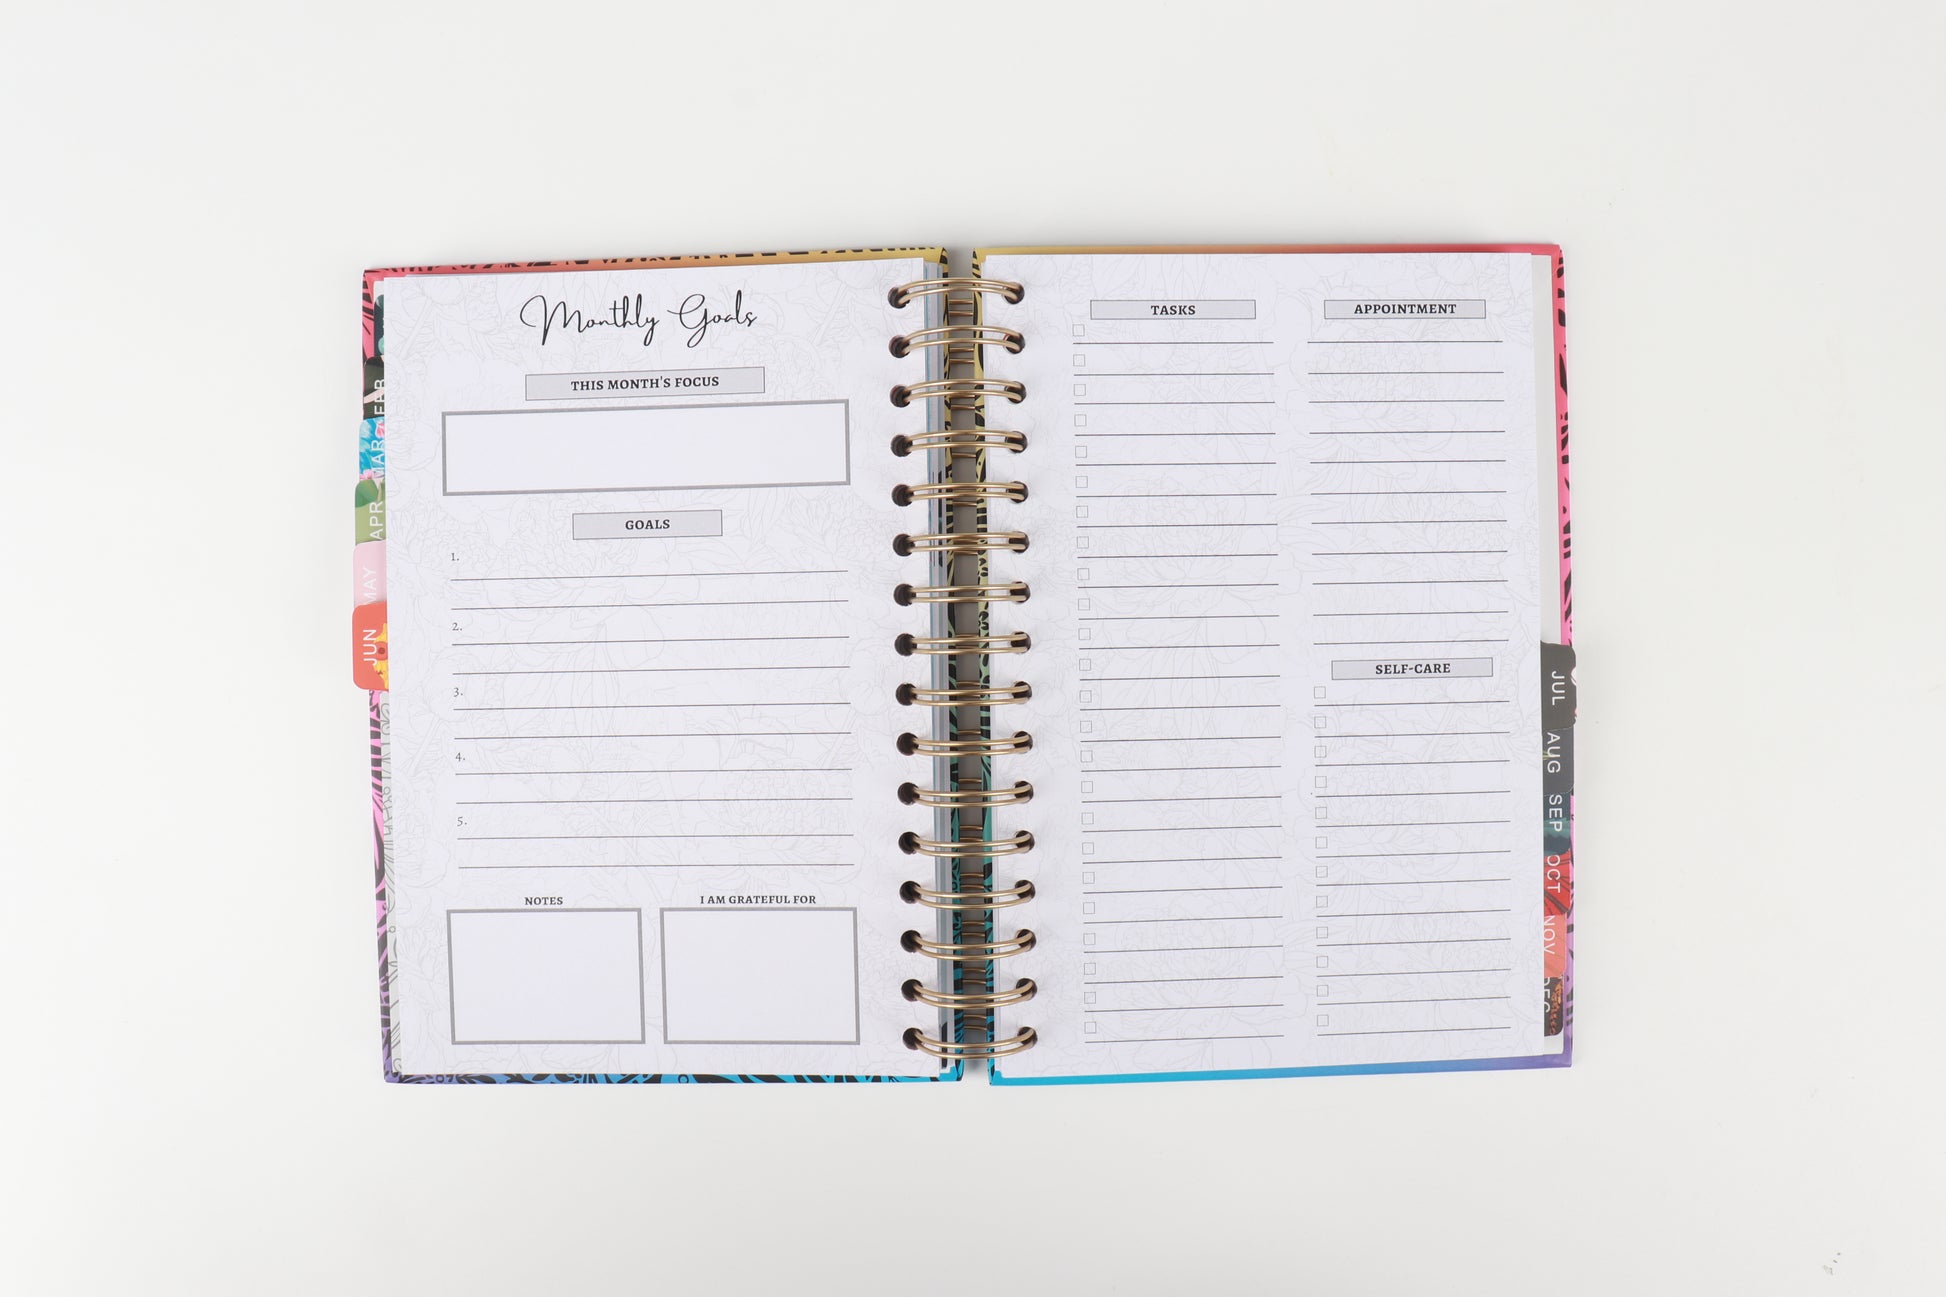 Monthly Goals
THIS MONTH'S FOCUS
GOALS
1.
2.
3.
4.
5.
NOTES
I AM GRATEFUL FOR
TASKS
APPOINTMENT
SELF-CARE
FEB
MAR
APR
MAY
JUN
JUL
AUG
SEP
OCT
NOV
DEC